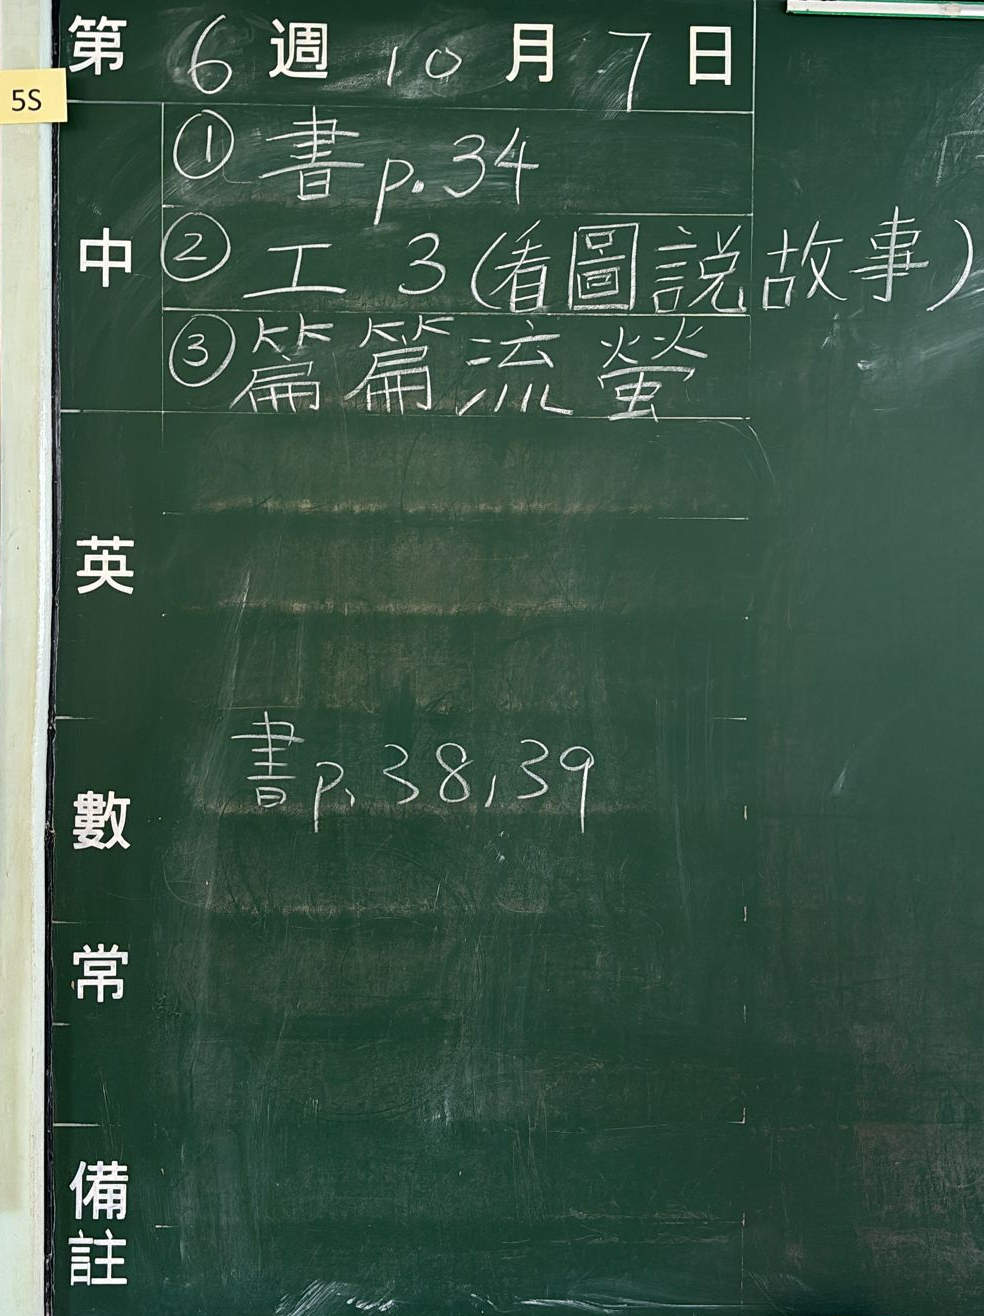 第 6 週 10 月 7 日
5S
中
① 書 p.34
② 工 3 (看圖說故事)
③ 篇篇流螢
英
數
書 p.38,39
常
備註